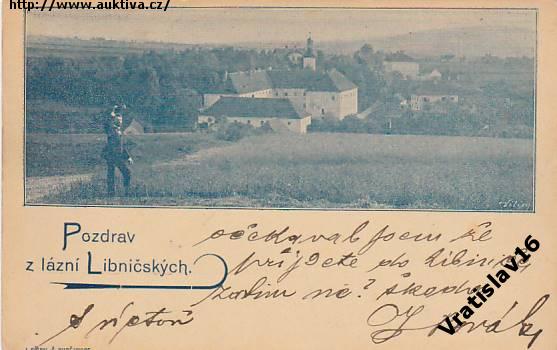 http://www.auktiva.cz/
Pozdrav
z lázní Libničských.
očekával jsem že
přijdete do Libnič
zatím nic? škoda
S úctou
Novák
Vratislav16